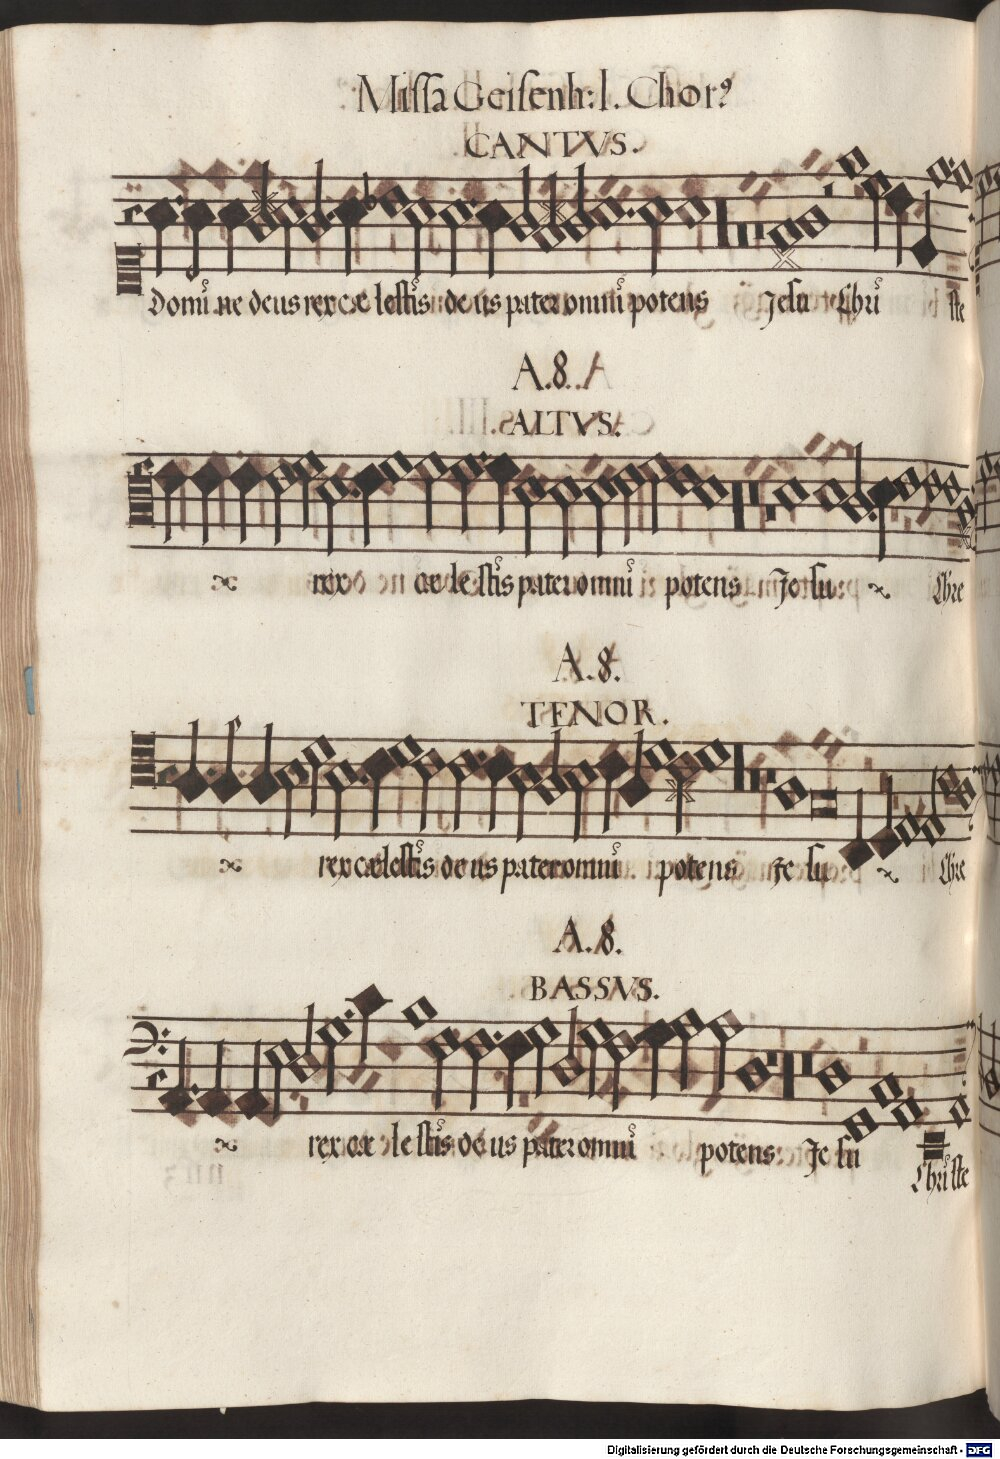 Missa Geisenh: I. Chor⁹
CANTVS.
Domi ne deus rex cæ lestis de us pater omni potens Jesu Chri ste
A. 8.
ALTVS.
rex cæ le stis pater omni potens Je su Chre
A. 8.
TENOR.
rex cælestis de us pater omni potens Je su Chre
A. 8.
BASSVS.
rex cæ le stis de us pater omni potens Je su
Chri ste
Digitalisierung gefördert durch die Deutsche Forschungsgemeinschaft - DFG